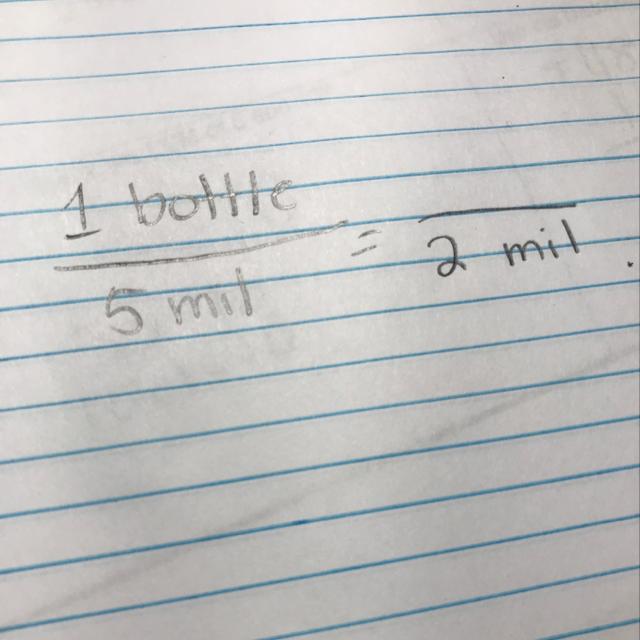 1 bottle
= 
5 mil 2 mil